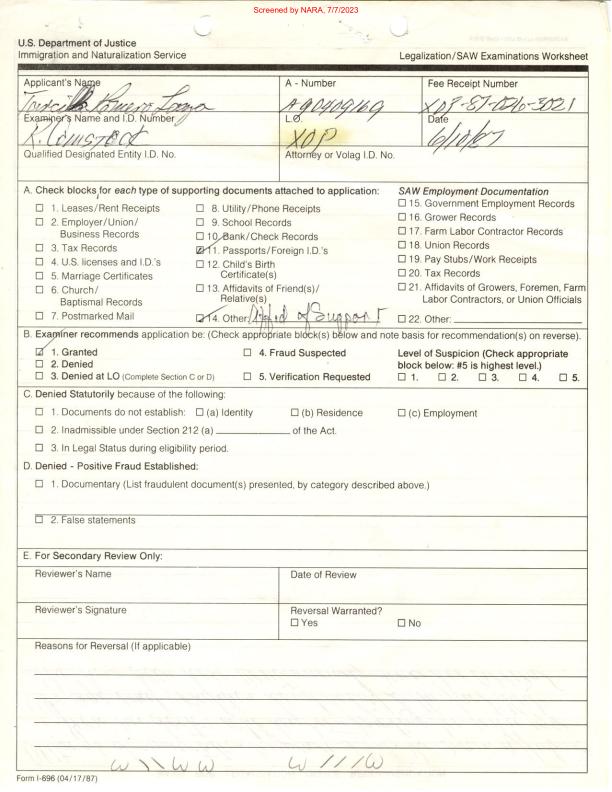 Screened by NARA, 7/7/2023
U.S. Department of Justice
Immigration and Naturalization Service
Legalization/SAW Examinations Worksheet
Applicant's Name
Romero
A - Number
A90409169
Fee Receipt Number
XOP-87-026-3021
Examiner's Name and I.D. Number
K. Comstock
L.O.
XOP
Date
6/10/87
Qualified Designated Entity I.D. No.
Attorney or Volag I.D. No.
A. Check blocks for each type of supporting documents attached to application:
☐ 1. Leases/Rent Receipts
☐ 2. Employer/Union/
Business Records
☐ 3. Tax Records
☐ 4. U.S. licenses and I.D.'s
☐ 5. Marriage Certificates
☐ 6. Church/
Baptismal Records
☐ 7. Postmarked Mail
☐ 8. Utility/Phone Receipts
☐ 9. School Records
☐ 10. Bank/Check Records
☑ 11. Passports/Foreign I.D.'s
☐ 12. Child's Birth
Certificate(s)
☐ 13. Affidavits of Friend(s)/
Relative(s)
☑ 14. Other: Affid of Support
SAW Employment Documentation
☐ 15. Government Employment Records
☐ 16. Grower Records
☐ 17. Farm Labor Contractor Records
☐ 18. Union Records
☐ 19. Pay Stubs/Work Receipts
☐ 20. Tax Records
☐ 21. Affidavits of Growers, Foremen, Farm
Labor Contractors, or Union Officials
☐ 22. Other:
B. Examiner recommends application be: (Check appropriate block(s) below and note basis for recommendation(s) on reverse).
☑ 1. Granted
☐ 2. Denied
☐ 3. Denied at LO (Complete Section C or D)
☐ 4. Fraud Suspected
☐ 5. Verification Requested
Level of Suspicion (Check appropriate
block below: #5 is highest level.)
☐ 1. ☐ 2. ☐ 3. ☐ 4. ☐ 5.
C. Denied Statutorily because of the following:
☐ 1. Documents do not establish: ☐ (a) Identity ☐ (b) Residence ☐ (c) Employment
☐ 2. Inadmissible under Section 212 (a) of the Act.
☐ 3. In Legal Status during eligibility period.
D. Denied - Positive Fraud Established:
☐ 1. Documentary (List fraudulent document(s) presented, by category described above.)
☐ 2. False statements
E. For Secondary Review Only:
Reviewer's Name
Date of Review
Reviewer's Signature
Reversal Warranted?
☐ Yes ☐ No
Reasons for Reversal (If applicable)
Form I-696 (04/17/87)